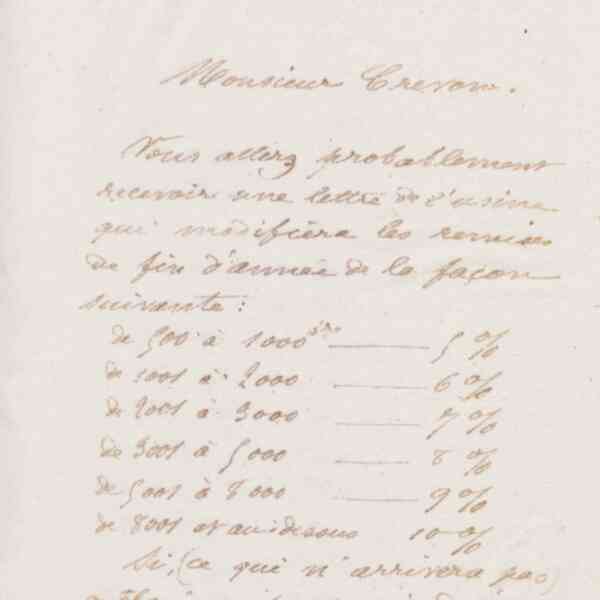 Monsieur Crevon.
Vous allez probablement
recevoir une lettre de l'usine
qui modifiera les remises
de fin d'année de la façon
suivante :
de 500 à 1000 frs 5 %
de 1001 à 2000 6 %
de 2001 à 3000 7 %
de 3001 à 5000 8 %
de 5001 à 8000 9 %
de 8001 et au-dessus 10 %
Si, (ce qui n'arrivera pas)